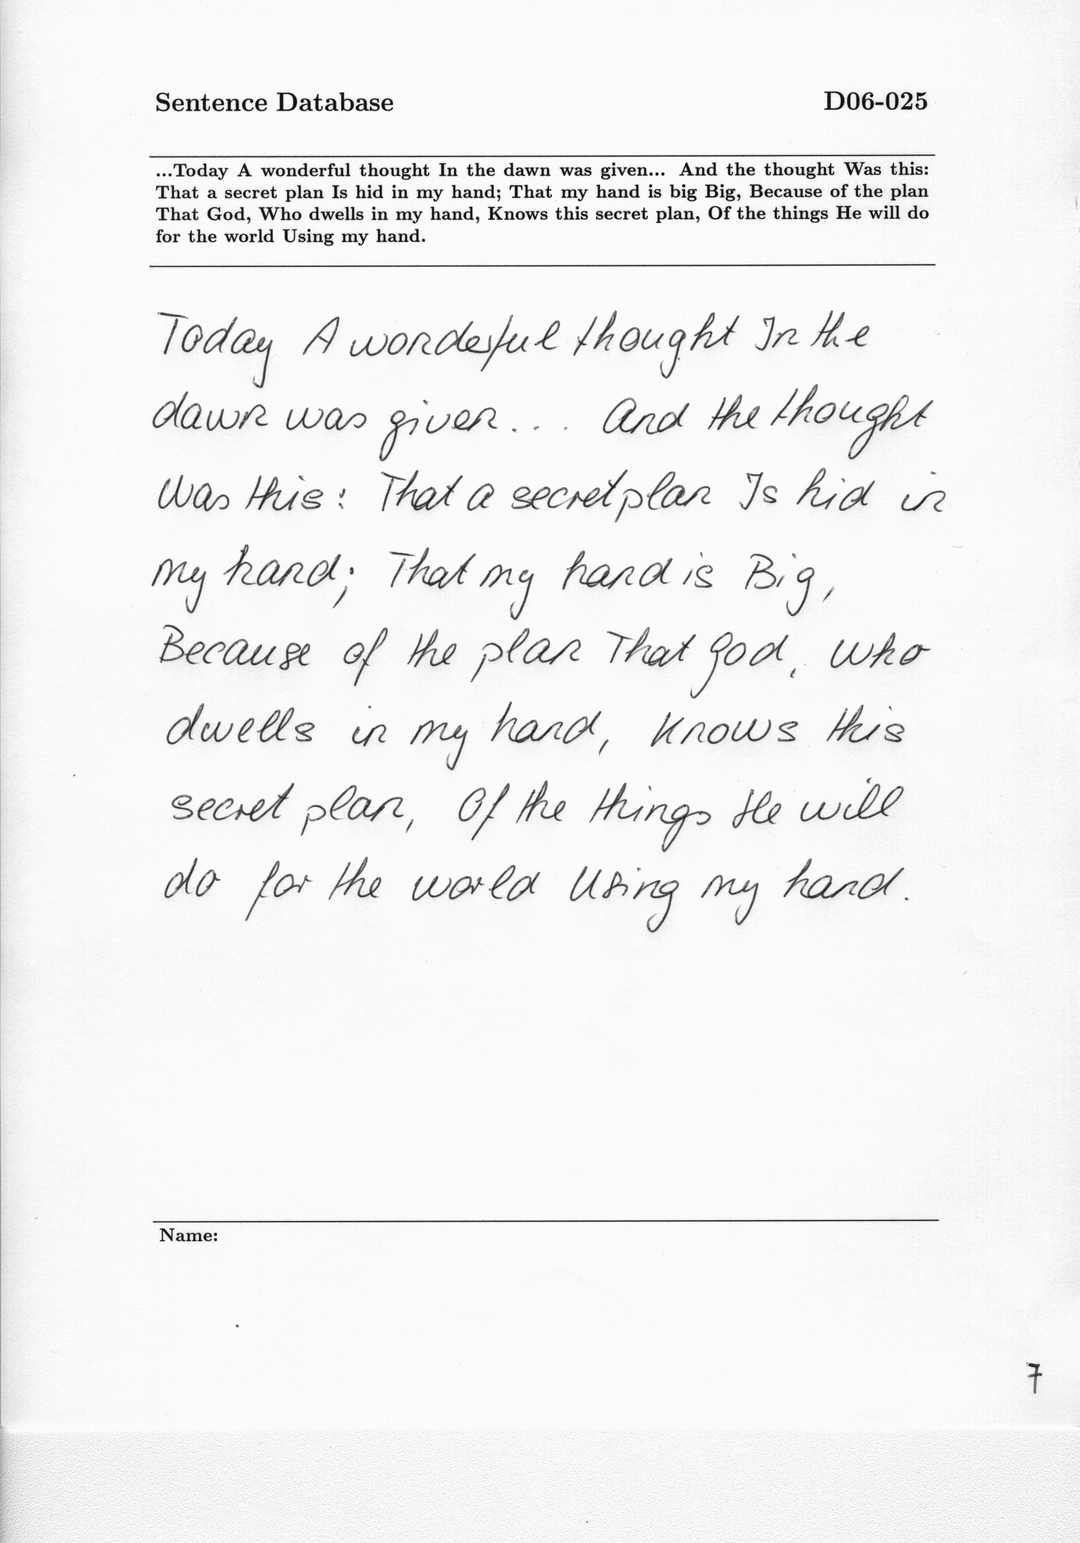 Sentence Database D06-025
...Today A wonderful thought In the dawn was given... And the thought Was this:
That a secret plan Is hid in my hand; That my hand is big Big, Because of the plan
That God, Who dwells in my hand, Knows this secret plan, Of the things He will do
for the world Using my hand.
Today A wonderful thought In the
dawn was given... And the thought
Was this: That a secret plan Is hid in
my hand; That my hand is Big,
Because of the plan That God, Who
dwells in my hand, Knows this
secret plan, Of the things He will
do for the world Using my hand.
Name:
7